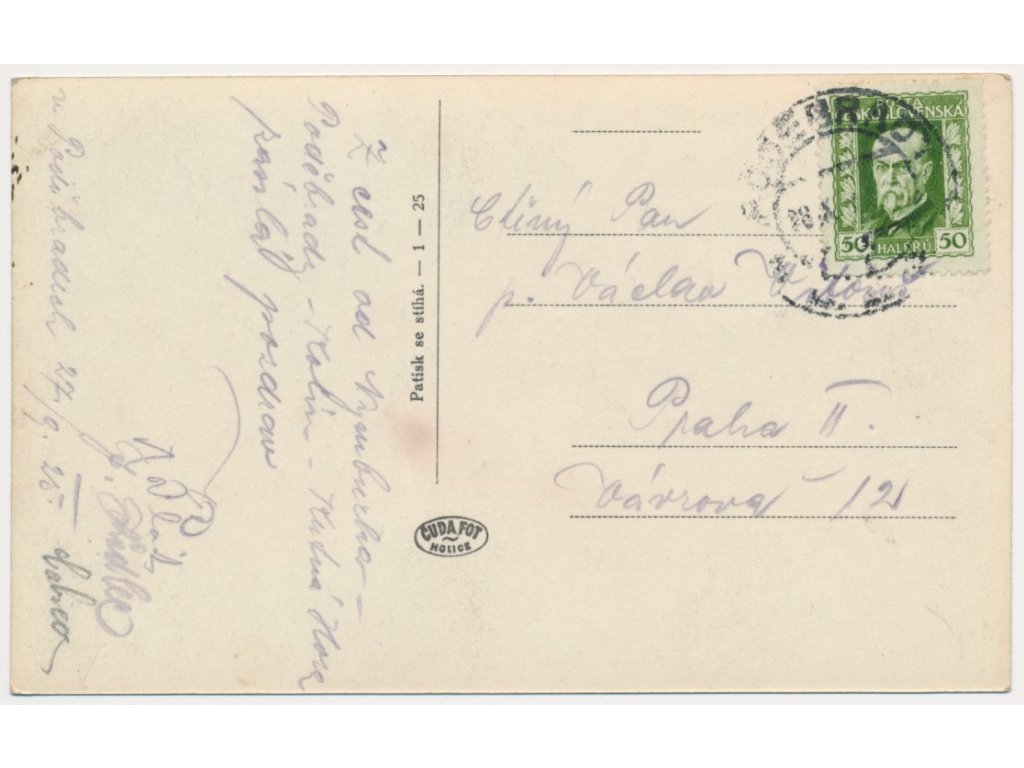 Z cest od Nymburka –
Poděbrady – Kolín – Kutná Hora
pozdrav
v Poděbradech 27/9. 25.
Patisk se stíhá. — 1 — 25
ČUDA FOT
HOLICE
POŠTA
ČESKOSLOVENSKÁ
50 HALÉŘŮ 50
Ctěný Pan
p. Václav
Praha II.
Vávrova 12